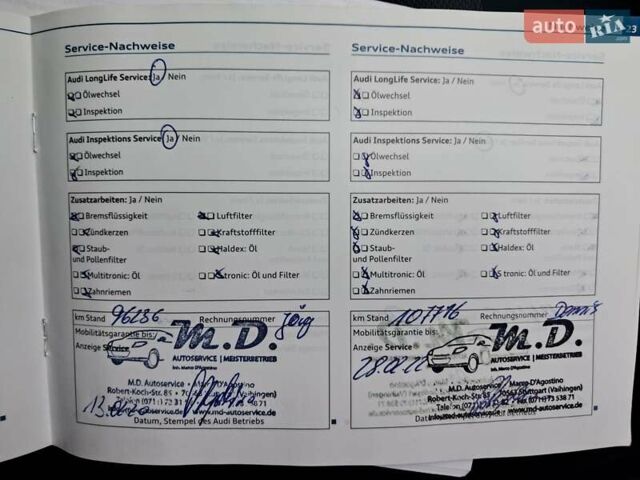 auto RIA
.com
23
Service-Nachweise
Audi LongLife Service: Ja / Nein
Ölwechsel
Inspektion
Audi Inspektions Service: Ja / Nein
Ölwechsel
Inspektion
Zusatzarbeiten: Ja / Nein
Bremsflüssigkeit
Luftfilter
Zündkerzen
Kraftstofffilter
Staub-
und Pollenfilter
Haldex: Öl
Multitronic: Öl
S tronic: Öl und Filter
Zahnriemen
km Stand 96286 Rechnungsnummer Jörg
Mobilitätsgarantie bis:
Anzeige Service
M.D.
AUTOSERVICE | MEISTERBETRIEB
Inh. Marco D'Agostino
M.D. Autoservice D'Agostino
Robert-Koch-Str. 85 Stuttgart (Vaihingen)
www.md-autoservice.de
Datum, Stempel des Audi Betriebs
Service-Nachweise
Audi LongLife Service: Ja / Nein
Ölwechsel
Inspektion
Audi Inspektions Service: Ja / Nein
Ölwechsel
Inspektion
Zusatzarbeiten: Ja / Nein
Bremsflüssigkeit
Luftfilter
Zündkerzen
Kraftstofffilter
Staub-
und Pollenfilter
Haldex: Öl
Multitronic: Öl
S tronic: Öl und Filter
Zahnriemen
km Stand 107716 Rechnungsnummer
Mobilitätsgarantie bis:
Anzeige Service
M.D.
AUTOSERVICE | MEISTERBETRIEB
Inh. Marco D'Agostino
M.D. Autoservice Marco D'Agostino
Robert-Koch-Str. 85 70563 Stuttgart (Vaihingen)
www.md-autoservice.de